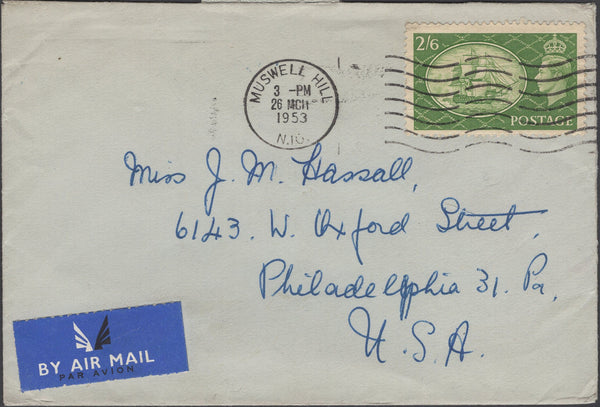 2/6
POSTAGE
MUSWELL HILL
3 -PM
26 MCH
1953
N.10.
Miss J. M. Hassall,
6143. W. Oxford Street,
Philadelphia 31. Pa,
U.S.A.
BY AIR MAIL
PAR AVION